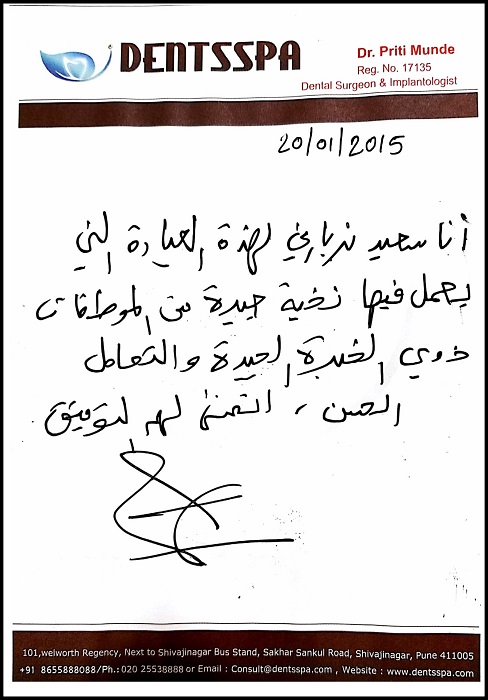 DENTSSPA
Dr. Priti Munde
Reg. No. 17135
Dental Surgeon & Implantologist
20/01/2015
أنا سعيد بزيارتي لهذة العيادة التي
يعمل فيها نخبة جيدة من الموظفات
ذوي الخبرة الجيدة والتعامل
الحسن ، اتمنى لهم التوفيق
101,welworth Regency, Next to Shivajinagar Bus Stand, Sakhar Sankul Road, Shivajinagar, Pune 411005
+91 8655888088/Ph.: 020 25538888 or Email : Consult@dentsspa.com , Website : www.dentsspa.com